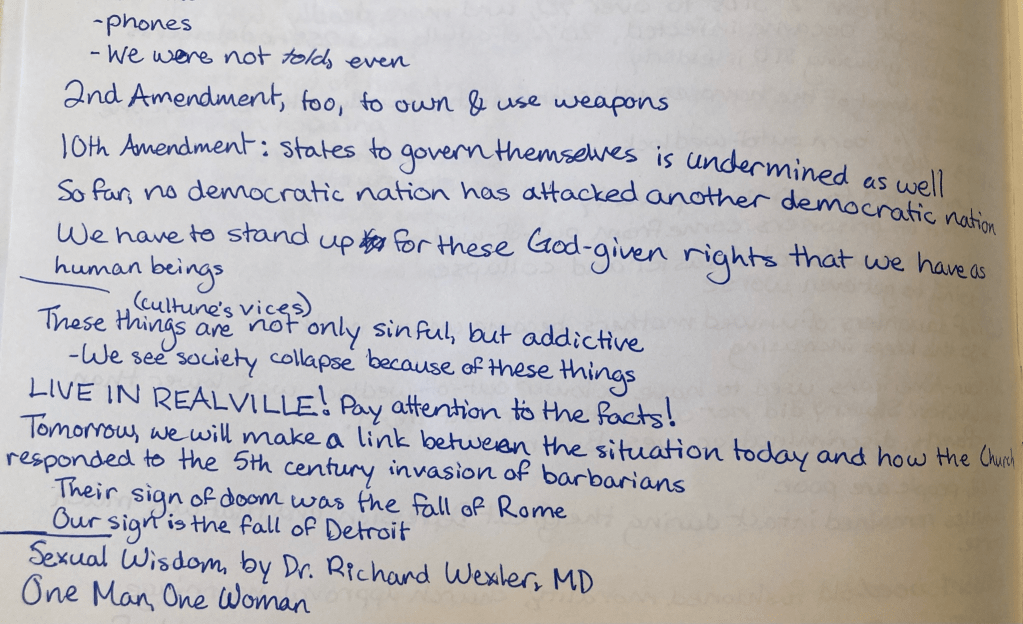 -phones
- We were not told, even
2nd Amendment, too, to own & use weapons
10th Amendment: states to govern themselves is undermined as well
So far, no democratic nation has attacked another democratic nation
We have to stand up for these God-given rights that we have as
human beings
(culture's vices)
These things are not only sinful, but addictive
-We see society collapse because of these things
LIVE IN REALVILLE! Pay attention to the facts!
Tomorrow, we will make a link between the situation today and how the Church
responded to the 5th century invasion of barbarians
Their sign of doom was the fall of Rome
Our sign is the fall of Detroit
Sexual Wisdom, by Dr. Richard Wexler, MD
One Man, One Woman